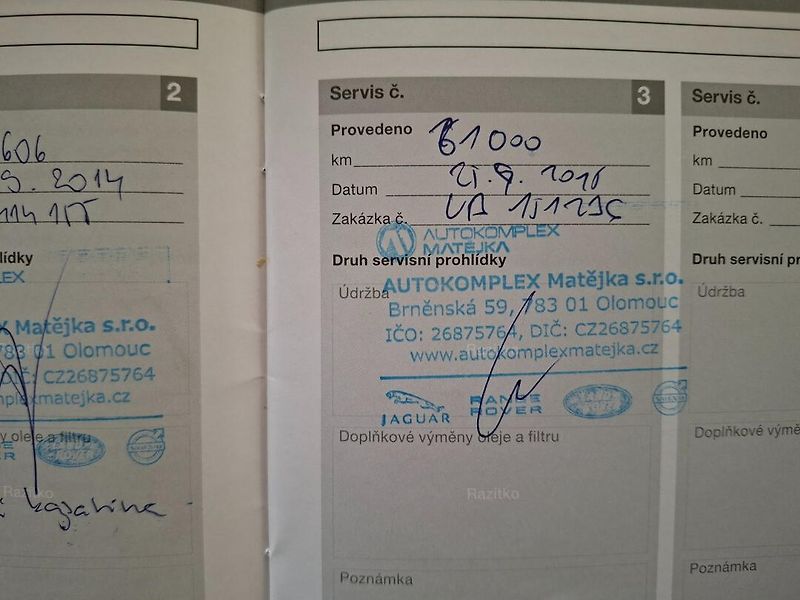 2
606
9. 2014
lídky
EX
X Matějka s.r.o.
783 01 Olomouc
DIČ: CZ26875764
mplexmatejka.cz
y oleje a filtru
ROVER
VOLVO
Razítko
Servis č. 3
Provedeno
km 61000
Datum
Zakázka č.
AUTOKOMPLEX
MATĚJKA
Druh servisní prohlídky
Údržba
AUTOKOMPLEX Matějka s.r.o.
Brněnská 59, 783 01 Olomouc
IČO: 26875764, DIČ: CZ26875764
www.autokomplexmatejka.cz
JAGUAR
RANGE
ROVER
LAND ROVER
VOLVO
Doplňkové výměny oleje a filtru
Razítko
Poznámka
Servis č.
Provedeno
km
Datum
Zakázka č.
Druh servisní pr
Údržba
Doplňkové výmě
Poznámka